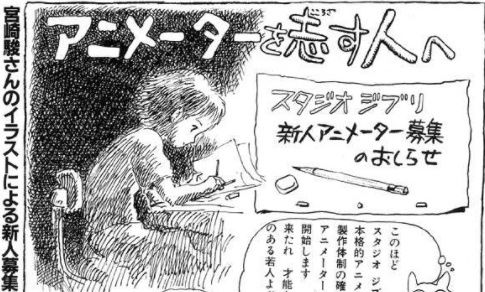 宮崎駿さんのイラストによる新人募集
アニメーターを志す人へ
こころざ
スタジオ ジブリ
新人アニメーター募集
のおしらせ
このほど
スタジオ ジブ
本格的アニメ
製作体制の確
アニメーター
開始します
来たれ 才能
のある若人よ